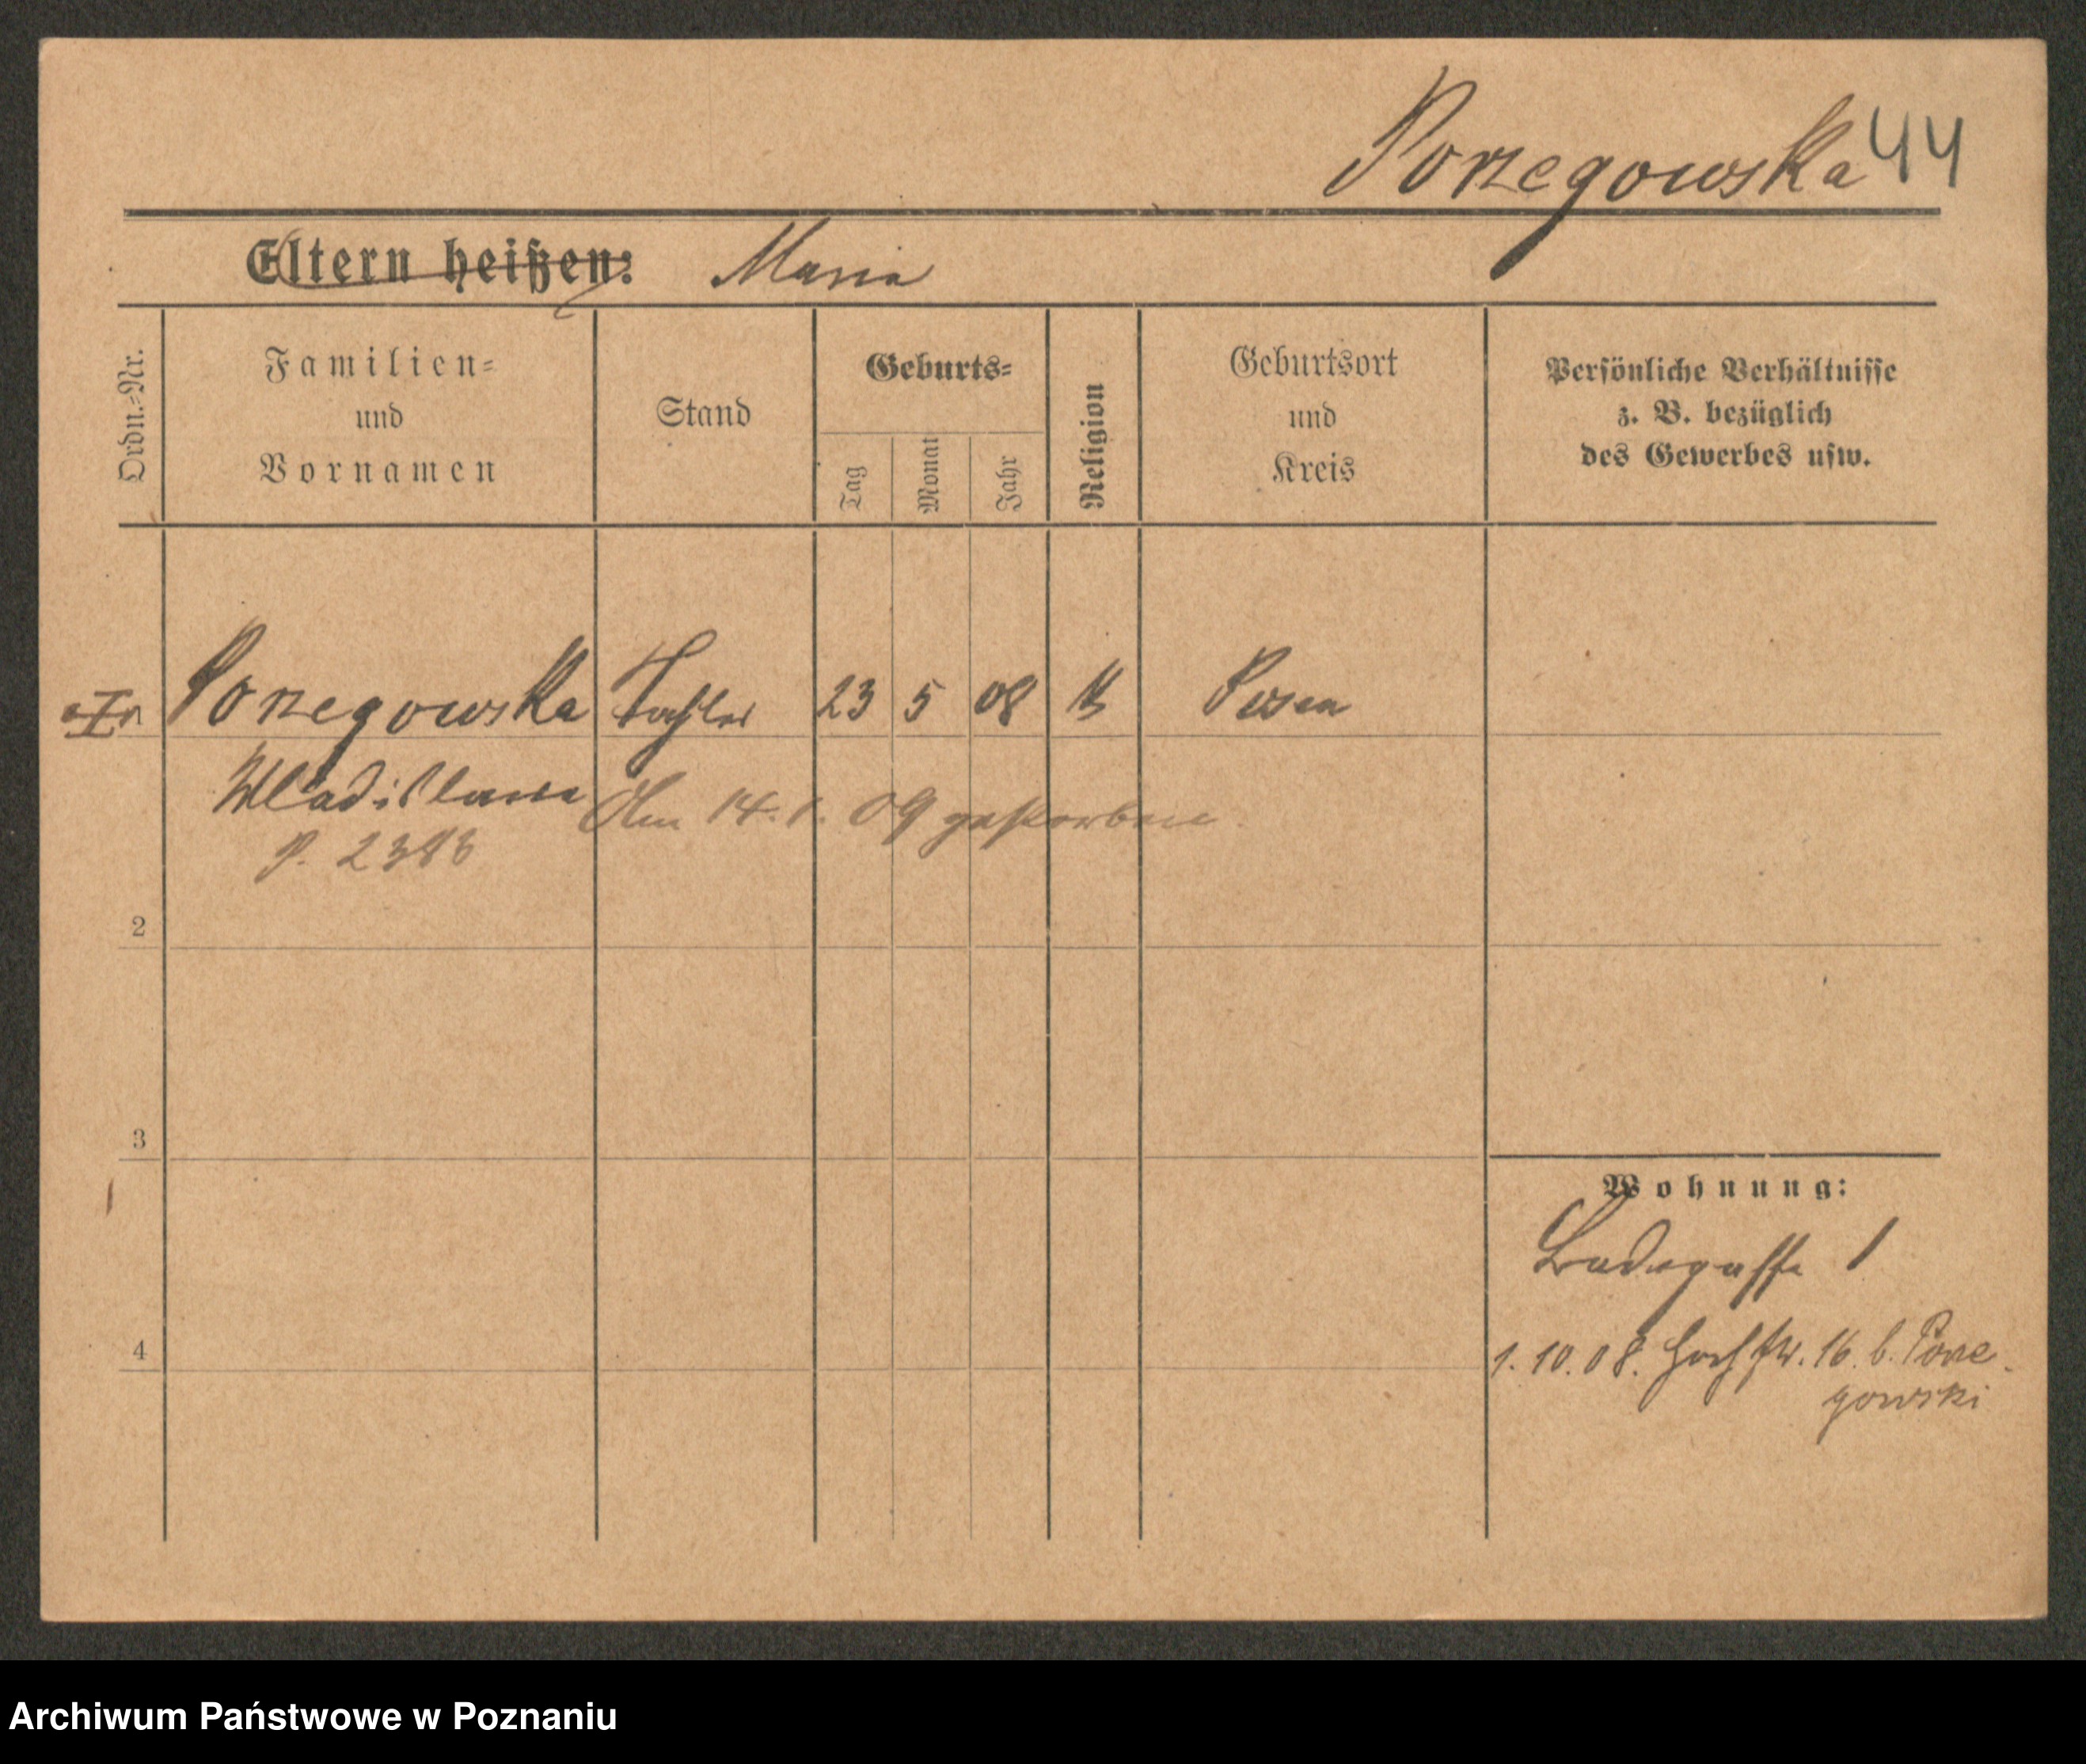 Porzegowska 44
Eltern heißen: Maria
Ordn.-Nr.
Familien-
und
Vornamen
Stand
Geburts-
Tag
Monat
Jahr
Religion
Geburtsort
und
Kreis
Persönliche Verhältnisse
z. B. bezüglich
des Gewerbes usw.
Porzegowska Tochter 23 5 08 K Posen
Wladislawa Am 14.1.09 gestorben.
P.
2
3
Wohnung:
Badegasse 1
4
1.10.08. 16 b. Porze-
gowski
Archiwum Państwowe w Poznaniu